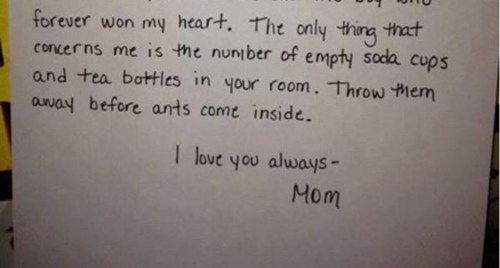 forever won my heart. The only thing that
concerns me is the number of empty soda cups
and tea bottles in your room. Throw them
away before ants come inside.
I love you always-
Mom